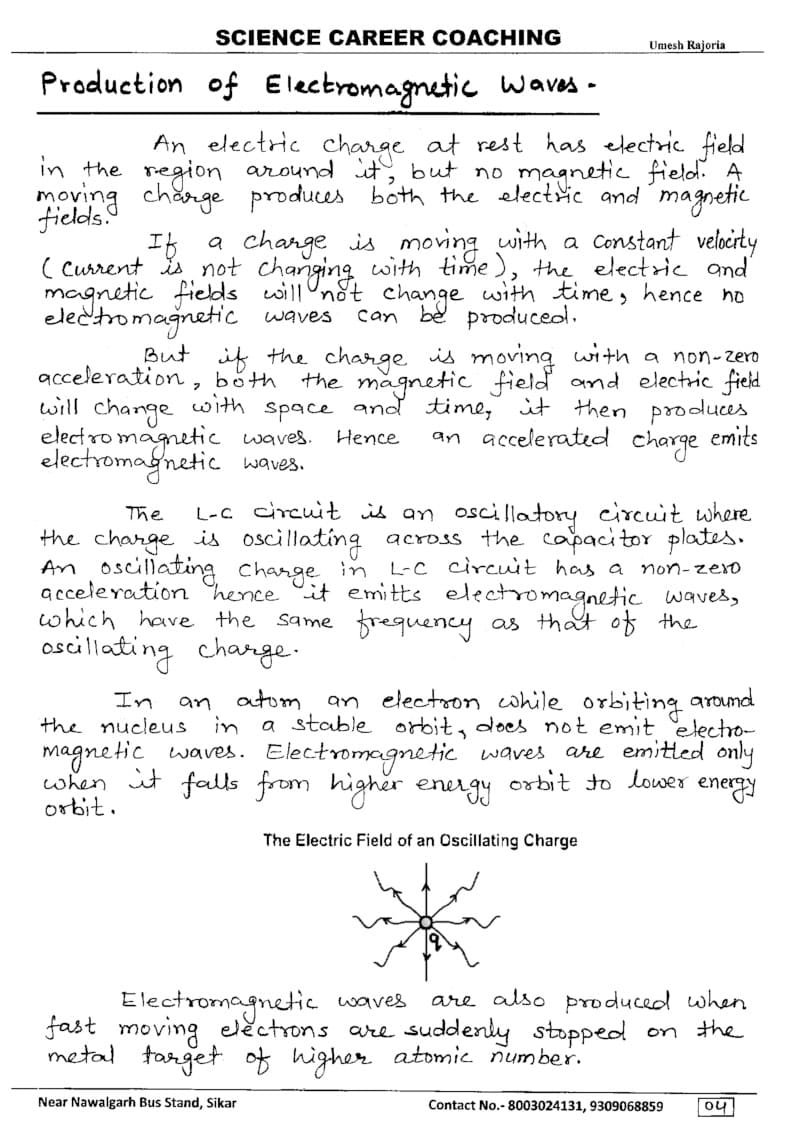 SCIENCE CAREER COACHING
Umesh Rajoria
Production of Electromagnetic Waves-
An electric charge at rest has electric field
in the region around it, but no magnetic field. A
moving charge produces both the electric and magnetic
fields.
If a charge is moving with a constant velocity
(current is not changing with time), the electric and
magnetic fields will not change with time, hence no
electromagnetic waves can be produced.
But if the charge is moving with a non-zero
acceleration, both the magnetic field and electric field
will change with space and time, it then produces
electromagnetic waves. Hence an accelerated charge emits
electromagnetic waves.
The L-C circuit is an oscillatory circuit where
the charge is oscillating across the capacitor plates.
An oscillating charge in L-C circuit has a non-zero
acceleration hence it emitts electromagnetic waves,
which have the same frequency as that of the
oscillating charge.
In an atom an electron while orbiting around
the nucleus in a stable orbit, does not emit electro-
magnetic waves. Electromagnetic waves are emitted only
when it falls from higher energy orbit to lower energy
orbit.
The Electric Field of an Oscillating Charge
q
Electromagnetic waves are also produced when
fast moving electrons are suddenly stopped on the
metal target of higher atomic number.
Near Nawalgarh Bus Stand, Sikar
Contact No.- 8003024131, 9309068859
04